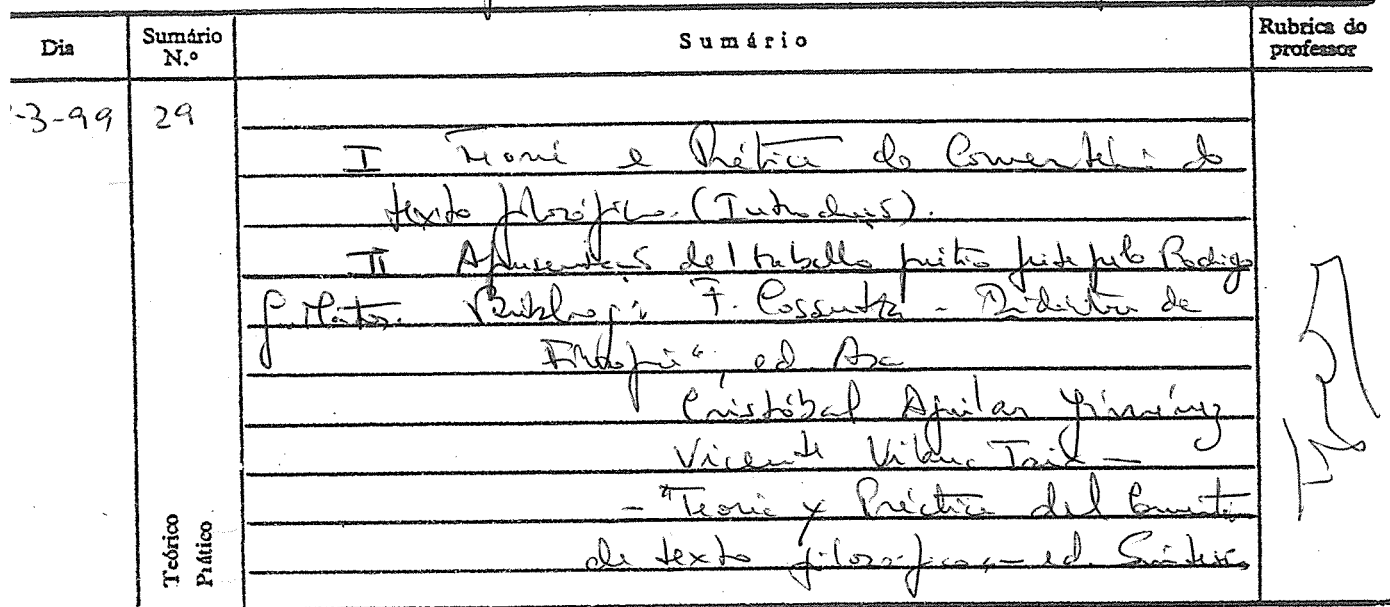 Dia
Sumário N.º
Sumário
Rubrica do professor
-3-99
29
I Teoria e Prática do Comentário do
texto filosófico. (Introdução).
II Apresentação de 1 trabalho prático feito pelo Rodrigo
G. Matos. Bibliografia F. Cossutta - Didáctica de
Filosofia", ed. Asa
Cristóbal Aguilar Jiménez
Vicente Vilana Taix -
- "Teoria y Práctica del Comentário
de texto filosófico, - ed. Síntesis
Teórico
Prático